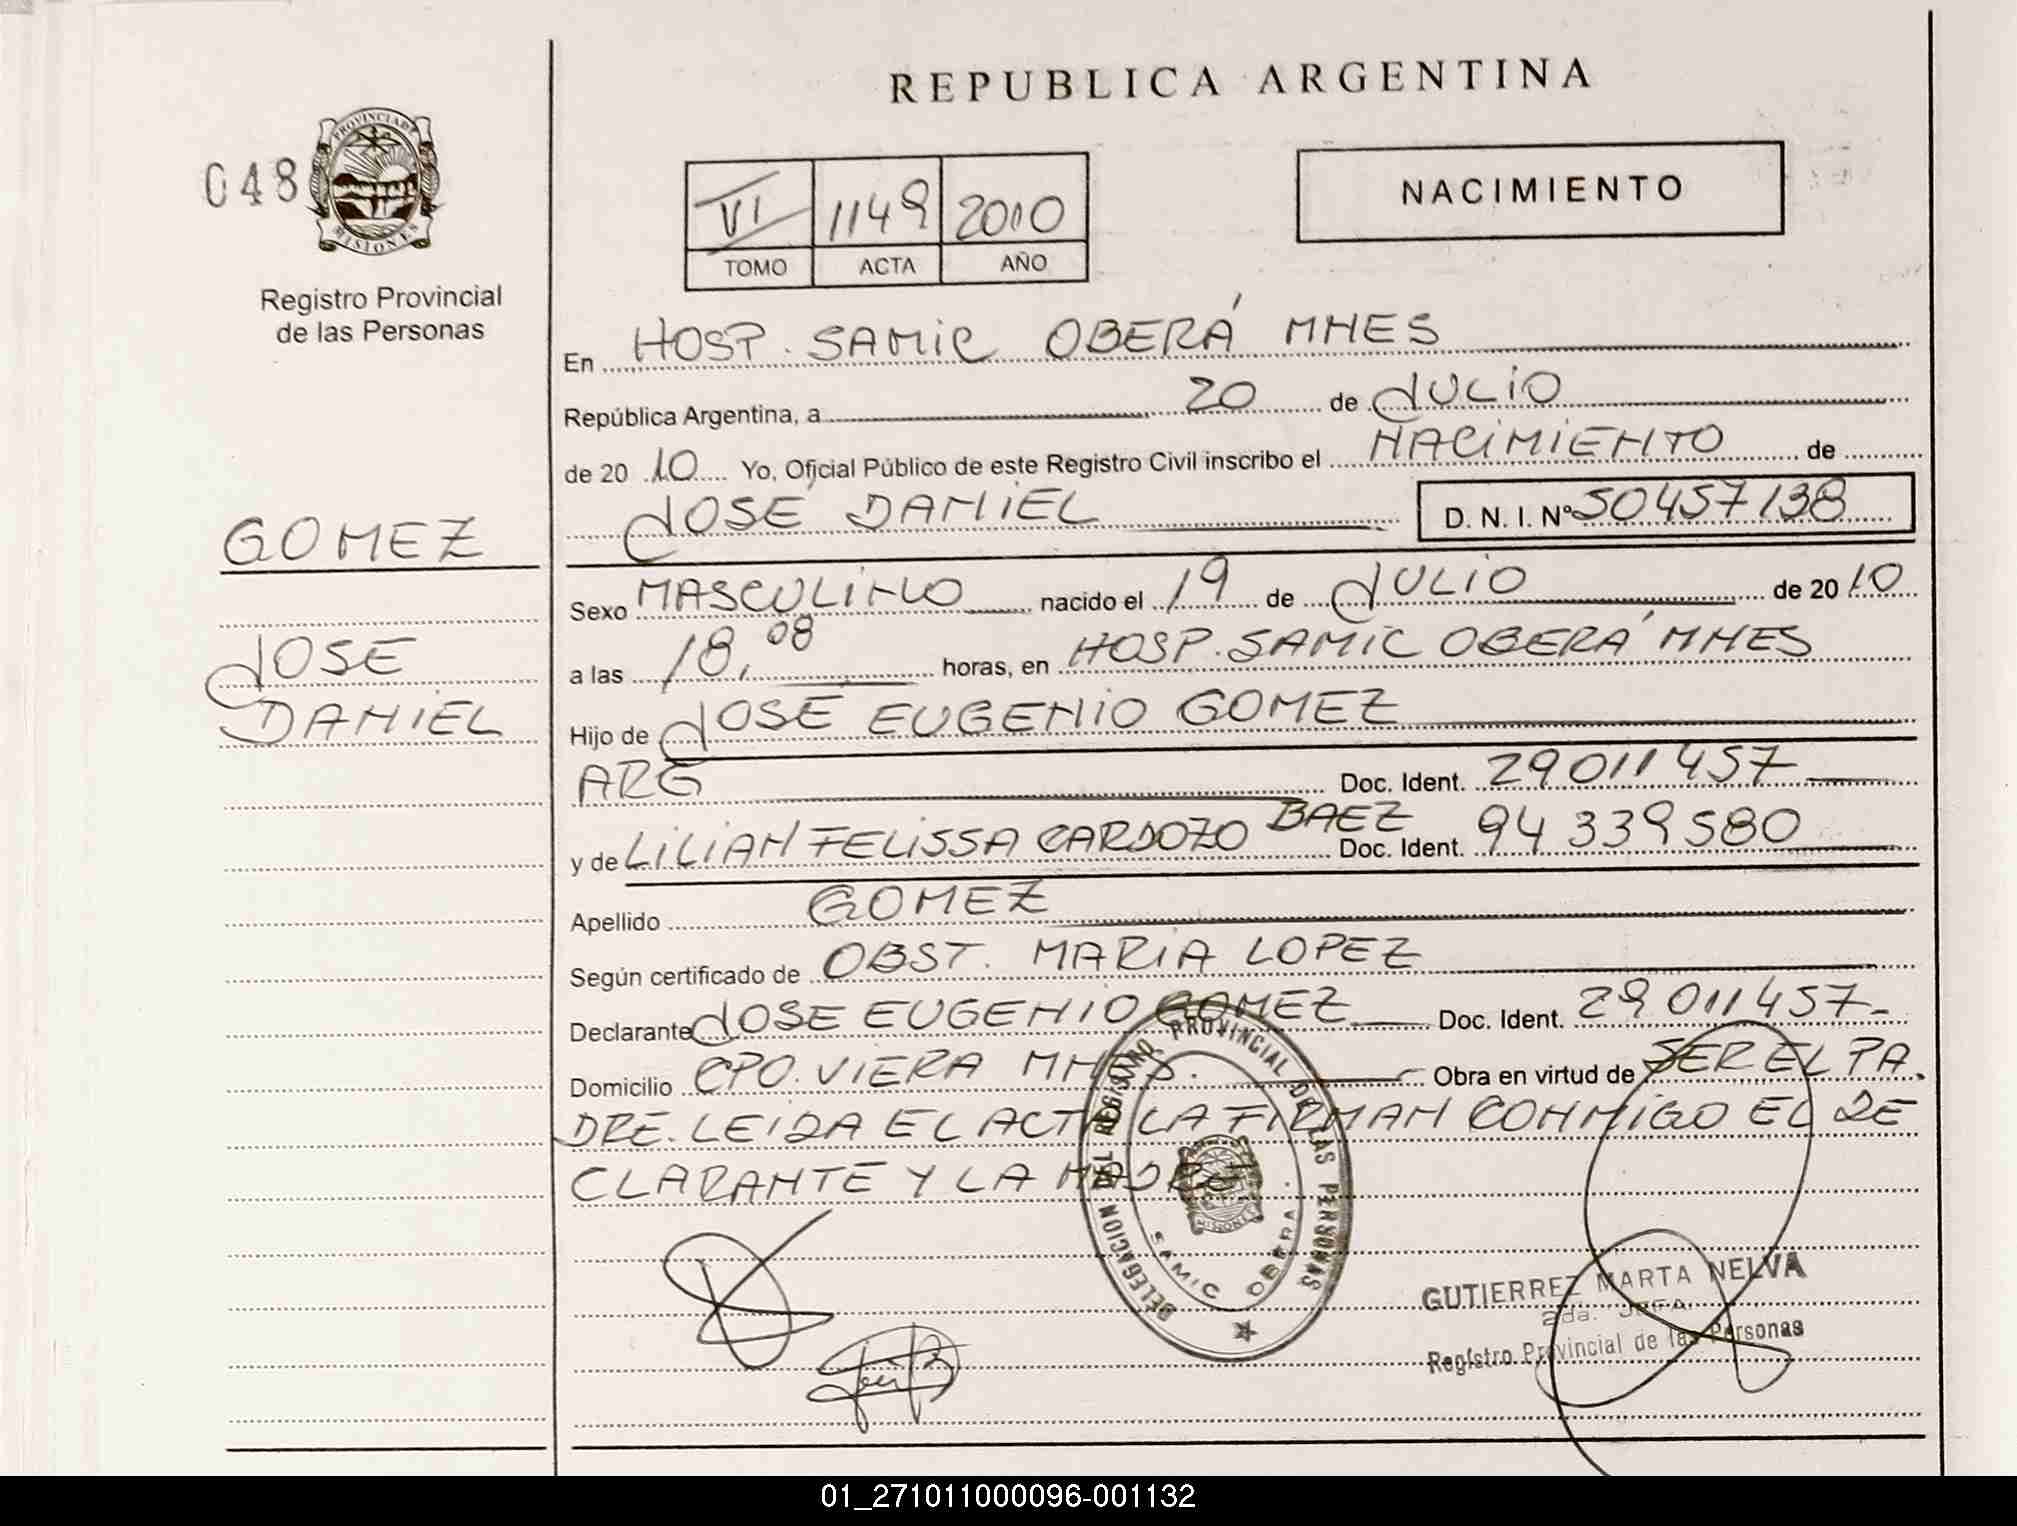 REPUBLICA ARGENTINA
048
PROVINCIA DE MISIONES
Registro Provincial
de las Personas
VI 1149 2010
TOMO ACTA AÑO
NACIMIENTO
En HOSP. SAMIC OBERÁ MNES
República Argentina, a 20 de JULIO
de 20 10 Yo, Oficial Público de este Registro Civil inscribo el NACIMIENTO de
JOSÉ DANIEL D. N. I. Nº 50457138
GOMEZ
JOSE
DANIEL
Sexo MASCULINO nacido el 19 de JULIO de 20 10
a las 18,08 horas, en HOSP. SAMIC OBERÁ MNES
Hijo de JOSÉ EUGENIO GOMEZ
ARG Doc. Ident. 29011457
y de LILIAN FELISSA CARDOZO BAEZ Doc. Ident. 94339580
Apellido GOMEZ
Según certificado de OBST. MARIA LOPEZ
Declarante JOSE EUGENIO GOMEZ Doc. Ident. 29011457-
Domicilio CPO. VIERA MNES. Obra en virtud de SER EL PA.
DRE. LEIDA EL ACTA LA FIRMAN CONMIGO EL DE
CLARANTE Y LA MADRE
DELEGACION DEL REGISTRO PROVINCIAL DE LAS PERSONAS
MISIONES
SAMIC OBERA
GUTIERREZ MARTA NELVA
2da. JEFA
Registro Provincial de las Personas
01_271011000096-001132